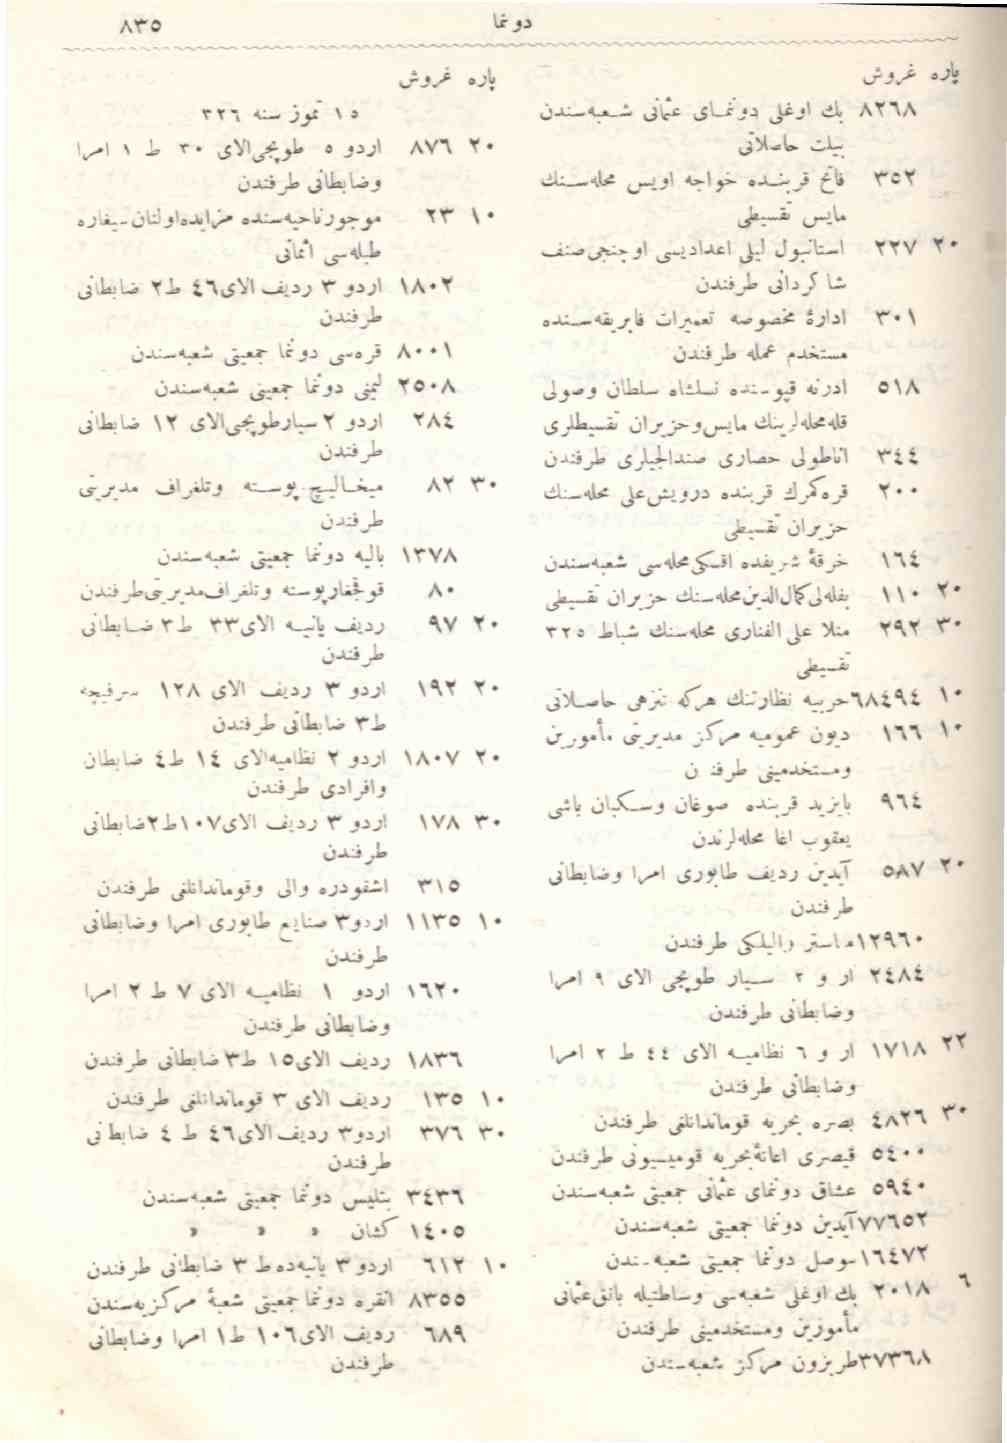 دوننما ٨٣٥
پاره غروش
٨٢٦٨ بك اوغلی دوننمای عثمانی شعبه‌سندن
بیلت حاصلاتی
٣٥٢ فاتح قربنده خواجه اویس محله‌سنك
مایس تقسیطی
٢٠ ٢٢٧ استانبول لیلی اعدادیسی اوچنجی صنف
شاكردانی طرفندن
٣٠١ ادارۀ مخصوصه تعمیرات فابریقه‌سنده
مستخدم عمله طرفندن
٥١٨ ادرنه قپوسنده نسلشاه سلطان وصولی
قله محله‌لرینك مایس وحزیران تقسیطلری
٣٤٤ اناطولی حصاری صندالجیلری طرفندن
٢٠٠ قره‌كمرك قربنده درویش علی محله‌سنك
حزیران تقسیطی
١٦٤ خرقۀ شریفده اقسكی محله‌سی شعبه‌سندن
٢٠ ١١٠ بفله‌لی كمال‌الدین محله‌سنك حزیران تقسیطی
٣٠ ٢٩٢ منلا علی الفناری محله‌سنك شباط ٣٢٥
تقسیطی
١٠ ٦٨٤٩٤ حربیه نظارتنك هركه تنزهی حاصلاتی
١٠ ١٦٦ دیون عمومیه مركز مدیریتی مأمورین
ومستخدمینی طرفندن
٩٦٤ بایزید قربنده صوغان وسكبان باشی
یعقوب اغا محله‌لرندن
٢٠ ٥٨٧ آیدین ردیف طابوری امرا وضابطانی
طرفندن
١٢٩٦٠ مناستر والیلكی طرفندن
٢٤٨٤ اردو ٢ سیار طوپجی الای ٩ امرا
وضابطانی طرفندن
٢٢ ١٧١٨ اردو ٦ نظامیه الای ٤٤ ط ٢ امرا
وضابطانی طرفندن
٣٠ ٤٨٢٦ بصره بحریه قوماندانلغی طرفندن
٥٤٠٠ قیصری اعانۀ بحریه قومیسیونی طرفندن
٥٩٤٠ عشاق دوننمای عثمانی جمعیتی شعبه‌سندن
٧٧٦٥٢ آیدین دوننما جمعیتی شعبه‌سندن
١٦٤٧٢ موصل دوننما جمعیتی شعبه‌سندن
٦ ٢٠١٨ بك اوغلی شعبه‌سی وساطتیله بانق عثمانی
مأمورین ومستخدمینی طرفندن
٣٧٣٦٨ طربزون مركز شعبه‌سندن
پاره غروش
١٥ تموز سنه ٣٢٦
٢٠ ٨٧٦ اردو ٥ طوپجی الای ٣٠ ط ١ امرا
وضابطانی طرفندن
١٠ ٢٣ موجور ناحیه‌سنده مزایده اولنان سیغاره
طبله‌سی اثمانی
١٨٠٢ اردو ٣ ردیف الای ٤٦ ط ٢ ضابطانی
طرفندن
٨٠٠١ قره‌سی دوننما جمعیتی شعبه‌سندن
٢٥٠٨ لیمنی دوننما جمعیتی شعبه‌سندن
٢٨٤ اردو ٢ سیار طوپجی الای ١٢ ضابطانی
طرفندن
٣٠ ٨٢ میخالیچ پوسته وتلغراف مدیریتی
طرفندن
١٣٧٨ بالیه دوننما جمعیتی شعبه‌سندن
٨٠ قوجغار پوسته وتلغراف مدیریتی طرفندن
٢٠ ٩٧ ردیف یانیه الای ٣٣ ط ٣ ضابطانی
طرفندن
٢٠ ١٩٢ اردو ٣ ردیف الای ١٢٨ سرفیجه
ط ٣ ضابطانی طرفندن
٢٠ ١٨٠٧ اردو ٢ نظامیه الای ١٤ ط ٤ ضابطان
وافرادی طرفندن
٣٠ ١٧٨ اردو ٣ ردیف الای ١٠٧ ط ٢ ضابطانی
طرفندن
٣١٥ اشقودره والی وقوماندانلغی طرفندن
١٠ ١١٣٥ اردو ٣ صنایع طابوری امرا وضابطانی
طرفندن
١٦٢٠ اردو ١ نظامیه الای ٧ ط ٢ امرا
وضابطانی طرفندن
١٨٣٦ ردیف الای ١٥ ط ٣ ضابطانی طرفندن
١٠ ١٣٥ ردیف الای ٣ قوماندانلغی طرفندن
٣٠ ٣٧٦ اردو ٣ ردیف الای ٤٦ ط ٤ ضابطانی
طرفندن
٣٤٣٦ بتلیس دوننما جمعیتی شعبه‌سندن
١٤٠٥ كشان » » »
١٠ ٦١٢ اردو ٣ یانیه‌ده ط ٣ ضابطانی طرفندن
٨٣٥٥ انقره دوننما جمعیتی شعبۀ مركزیه‌سندن
٦٨٩ ردیف الای ١٠٦ ط ١ امرا وضابطانی
طرفندن